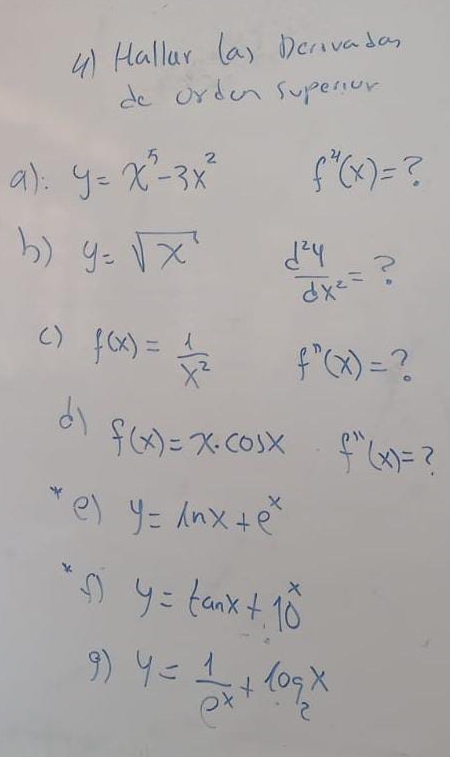 4) Hallar las Derivadas
de orden superior
a): y = x⁵ - 3x² f⁴(x) = ?
b) y = √x d²y/dx² = ?
c) f(x) = 1/x² fⁿ(x) = ?
d) f(x) = x·cosx f''(x) = ?
*e) y = lnx + eˣ
*f) y = tanx + 10ˣ
g) y = 1/eˣ + log₂x